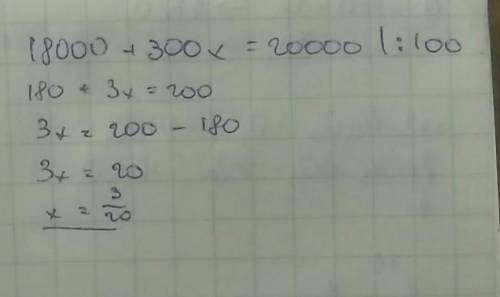 18000 + 300x = 20000 | : 100
180 + 3x = 200
3x = 200 - 180
3x = 20
x = 3/20